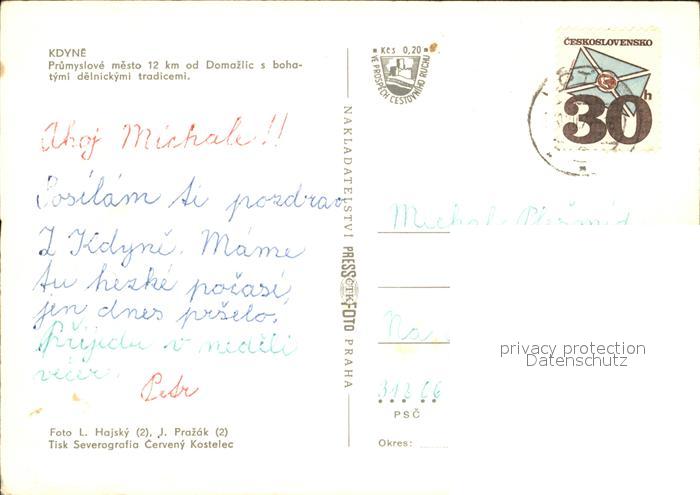 KDYNĚ
Průmyslové město 12 km od Domažlic s boha-
tými dělnickými tradicemi.
Ahoj Míchale!!
Posílám ti pozdrav
Z Kdyně. Máme
tu hezké počasí,
jen dnes pršelo.
Přijedu v neděli
večer.
Petr
Foto L. Hajský (2), J. Pražák (2)
Tisk Severografia Červený Kostelec
NAKLADATELSTVÍ PRESSFOTO PRAHA
ČTK
Kčs 0,20
VE PROSPĚCH CESTOVNÍHO RUCHU
ČESKOSLOVENSKO
30h
Michal
Na
PSČ
Okres:
privacy protection
Datenschutz